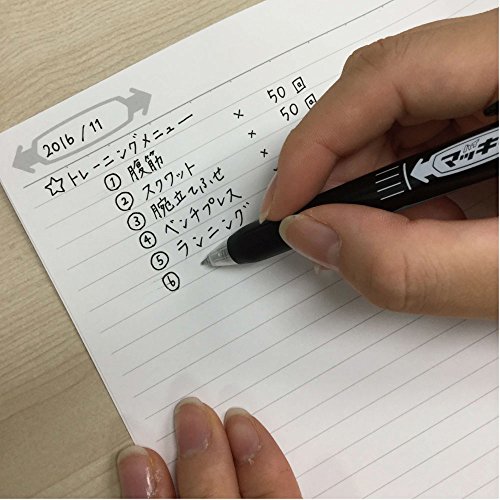 2016/11
☆トレーニングメニュー
① 腹筋 × 50 回
② スクワット × 50 回
③ 腕立てふせ ×
④ ベンチプレス
⑤ ランニング
⑥
マッキー